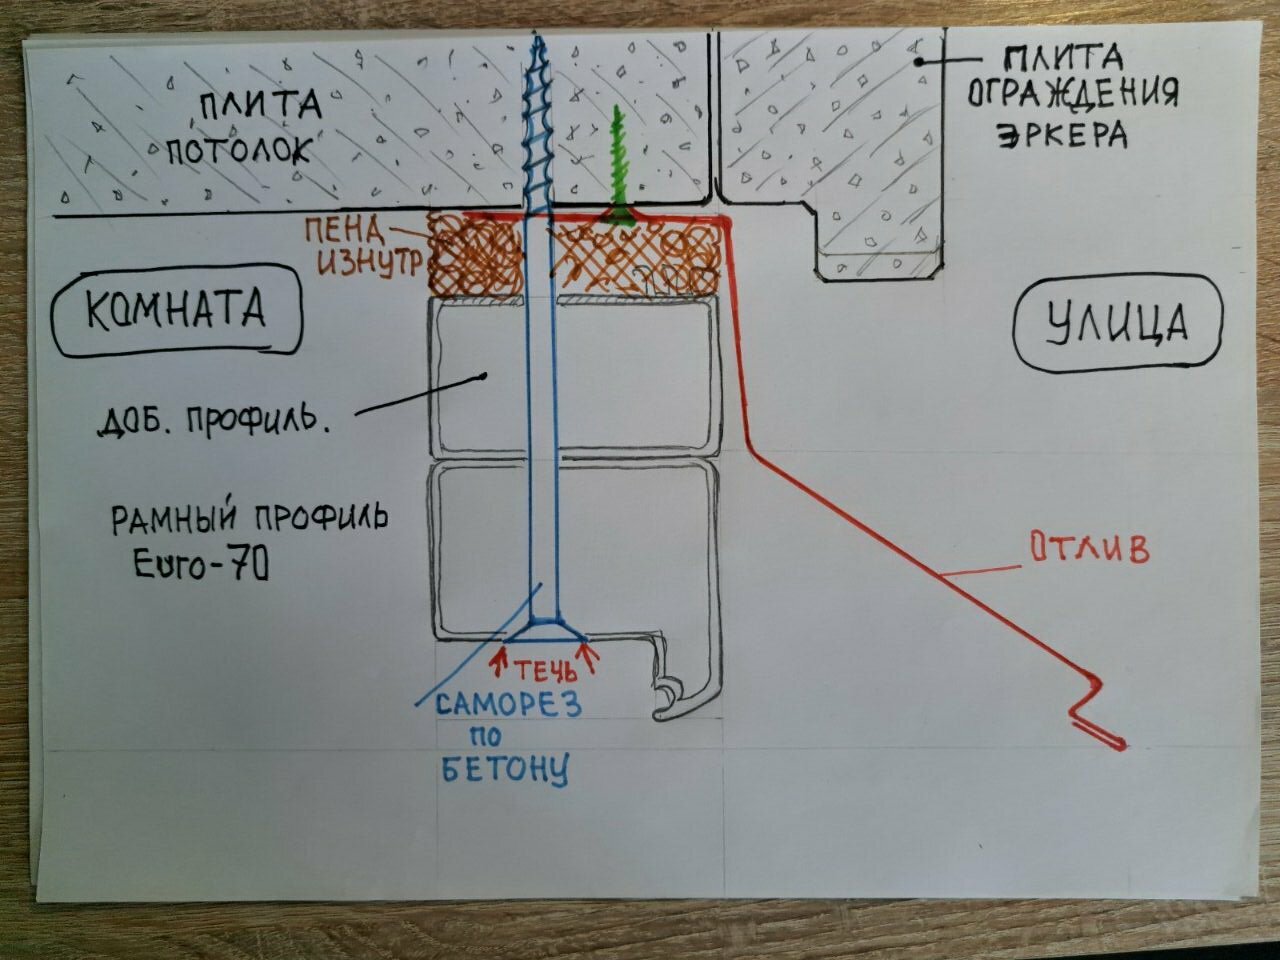 ПЛИТА
ПОТОЛОК
ПЛИТА
ОГРАЖДЕНИЯ
ЭРКЕРА
ПЕНА
ИЗНУТР
КОМНАТА
УЛИЦА
ДОБ. ПРОФИЛЬ.
РАМНЫЙ ПРОФИЛЬ
Euro-70
ОТЛИВ
ТЕЧЬ
САМОРЕЗ
ПО
БЕТОНУ